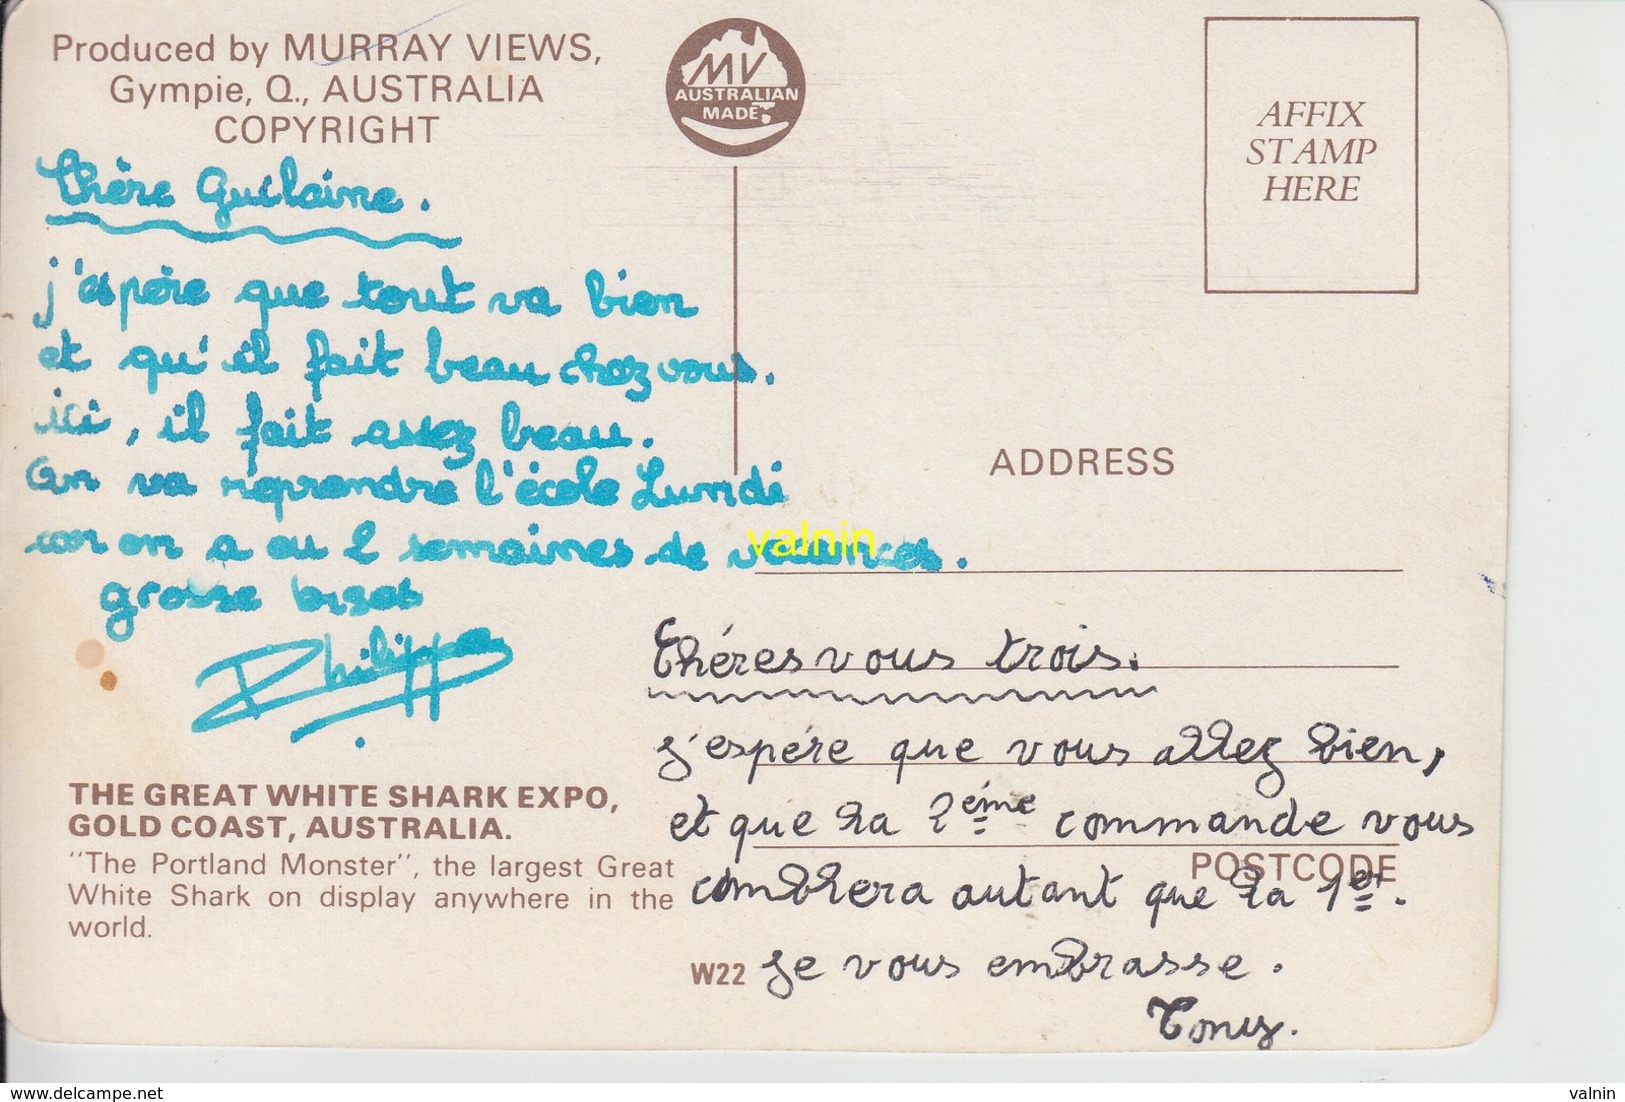 Produced by MURRAY VIEWS,
Gympie, Q., AUSTRALIA
COPYRIGHT
MV
AUSTRALIAN
MADE
AFFIX
STAMP
HERE
Chère Guilaine.
j'espère que tout va bien
et qu'il fait beau chez vous.
ici, il fait assez beau.
On va reprendre l'école Lundi
car on a eu 2 semaines de vacances.
grosse bises
Philippe
ADDRESS
valnin
Chéres vous trois.
J'espére que vous allez bien,
et que la 2éme commande vous
comblera autant que la 1er.
Je vous embrasse.
Tony.
POSTCODE
THE GREAT WHITE SHARK EXPO,
GOLD COAST, AUSTRALIA.
"The Portland Monster", the largest Great
White Shark on display anywhere in the
world.
W22
valnin
www.delcampe.net